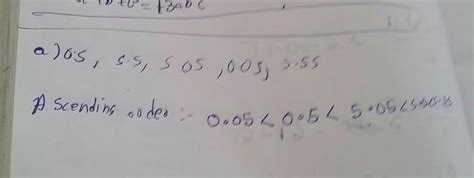 a) 0.5, 5.5, 5.05, 0.05, 5.55
Ascending order :- 0.05 < 0.5 < 5.05 <